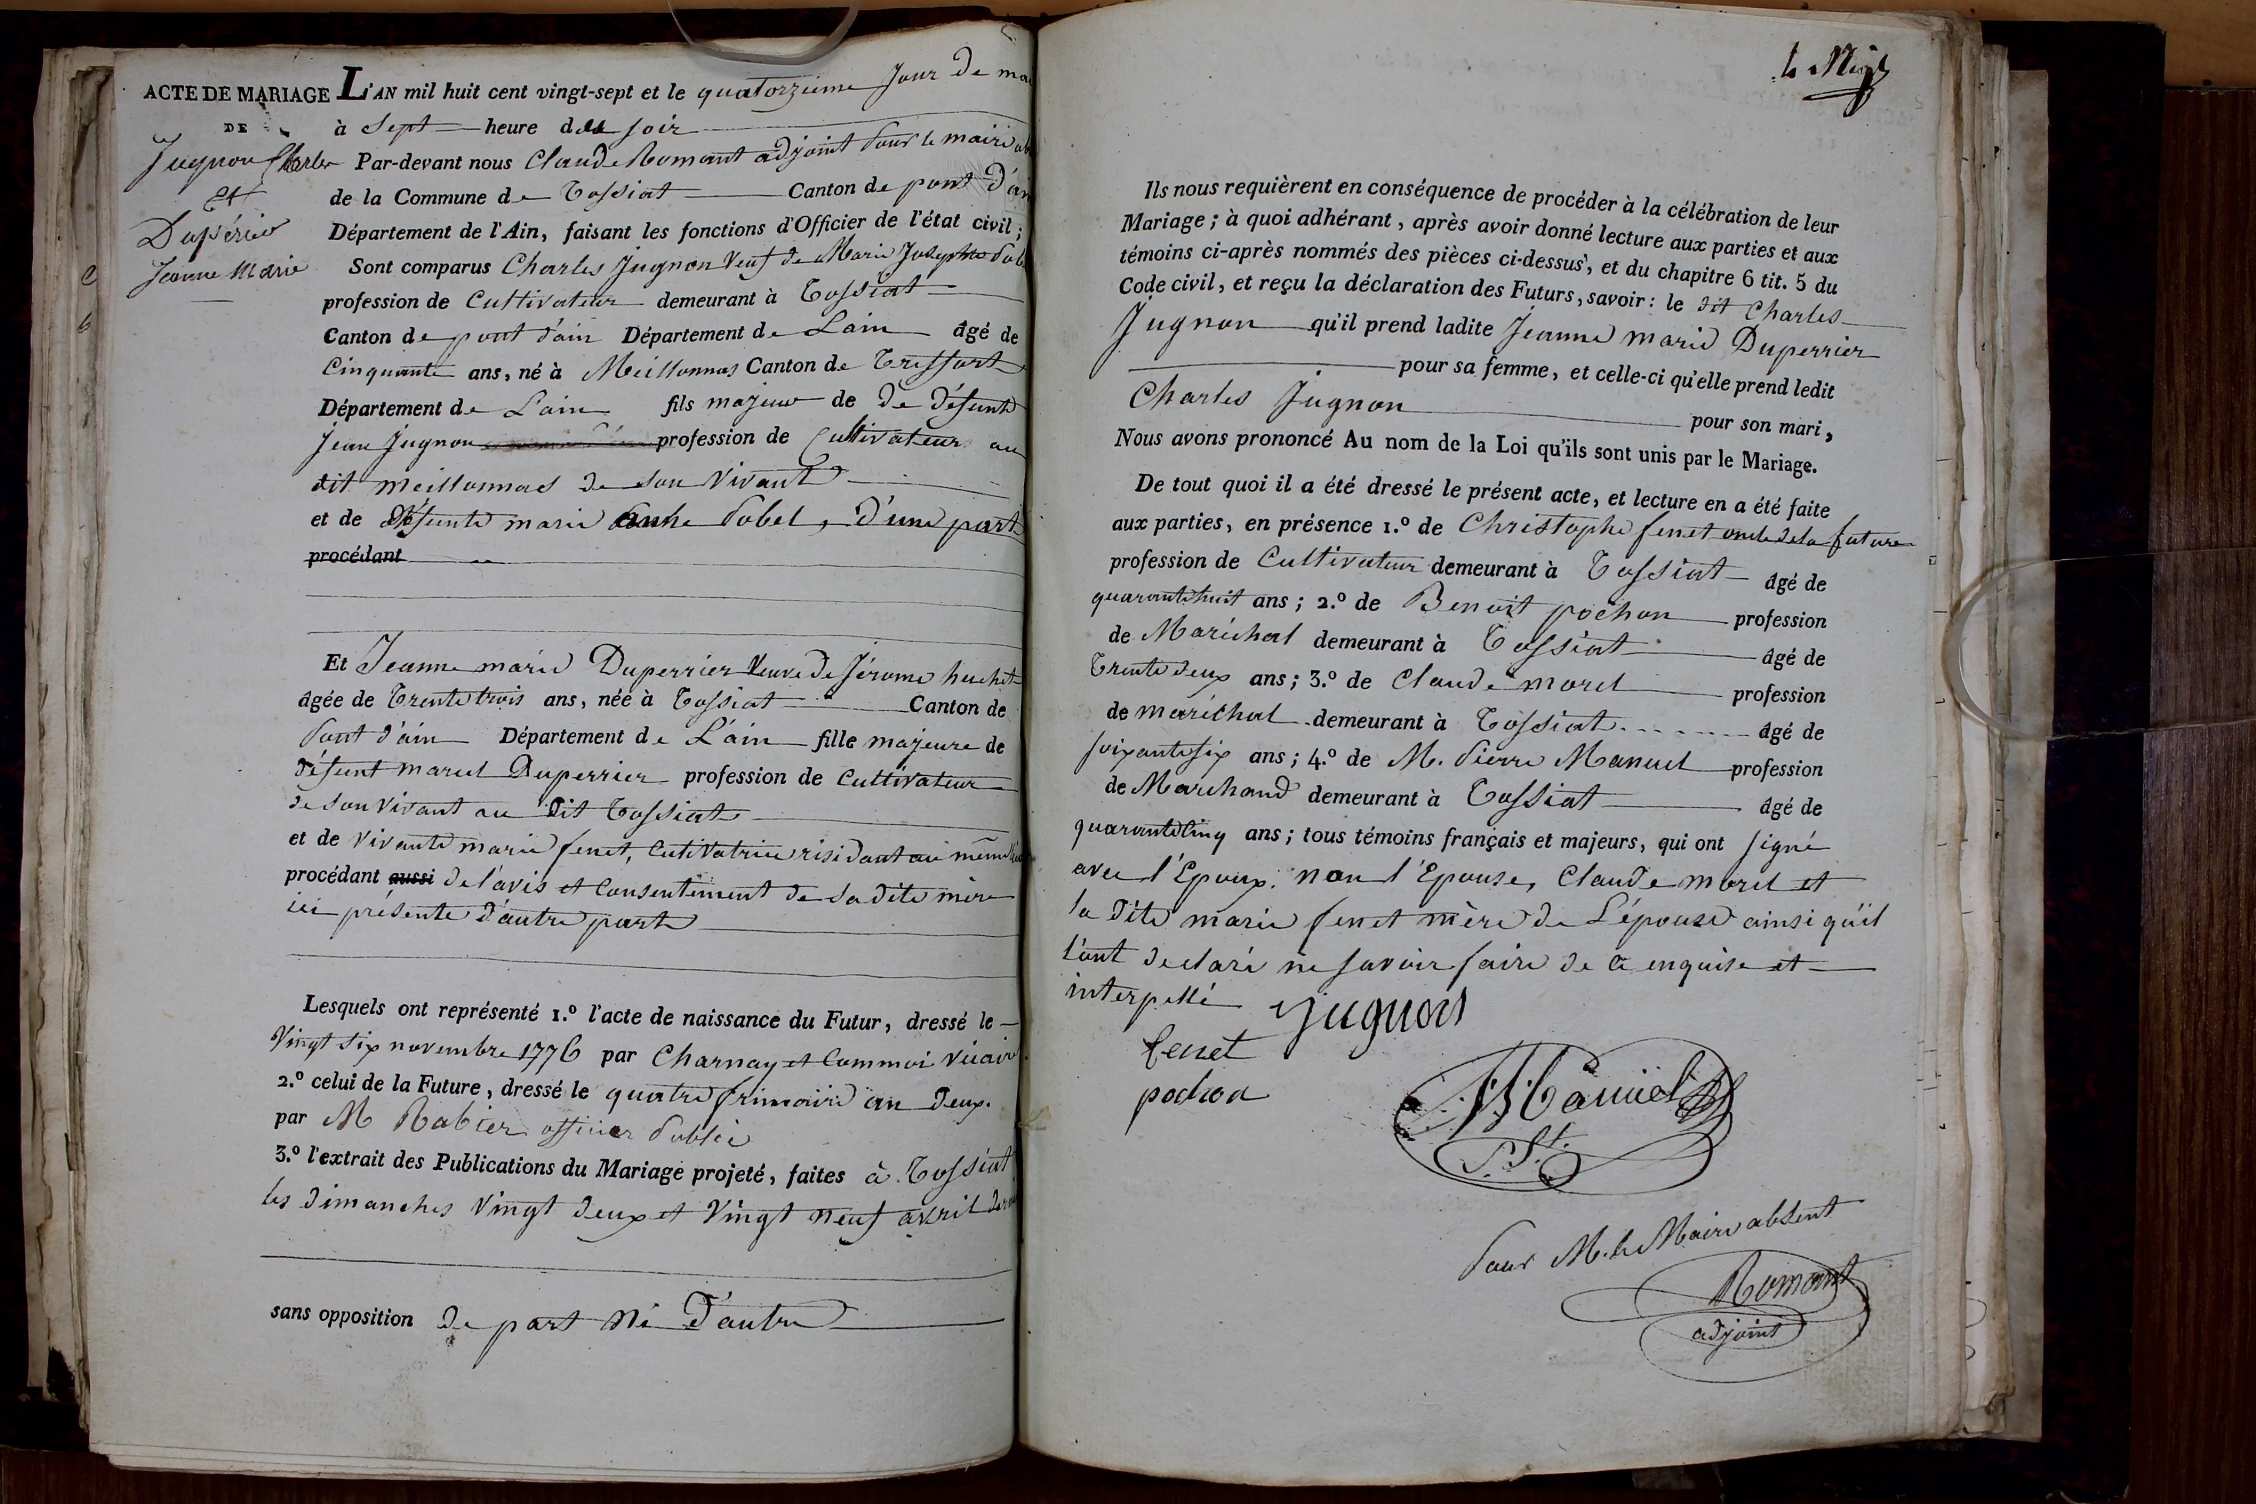 ACTE DE MARIAGE
DE
Jugnon Charles
Et
Dupérier
Jeanne Marie
L'AN mil huit cent vingt-sept et le quatorzieme Jour de mai
à Sept heure du soir
Par-devant nous Claude Romant adjoint pour le maire
de la Commune de Tossiat Canton de pont d'ain
Département de l'Ain, faisant les fonctions d'Officier de l'état civil ;
Sont comparus Charles Jugnon Veuf de Marie Josephte
profession de Cultivateur demeurant à Tossiat
Canton de pont d'ain Département de L'ain âgé de
Cinquante ans, né à Meillonnas Canton de Treffort
Département de L'ain fils majeur de de défunt
Jean Jugnon profession de Cultivateur au
dit meillonnas de son Vivant
et de défunte marie Anne Pobel, d'une part
procédant
Et Jeanne marie Duperrier Veuve de Jérome huchet
âgée de Trente trois ans, née à Tossiat Canton de
Pont d'ain Département de L'ain fille majeure de
défunt marcel Duperrier profession de Cultivateur
de son vivant au Dit Tossiat
et de vivante marie fenet, Cutivatrice résidant au même
procédant aussi de l'avis et Consentement de sa dite mère
ici présente d'autre part
Lesquels ont représenté 1.º l'acte de naissance du Futur, dressé le
Vingt six novembre 1776 par Charnay et Commoi Vicaire
2.º celui de la Future, dressé le quatre frimaire an deux.
par M Rabier officier Public
3.º l'extrait des Publications du Mariage projeté, faites à Tossiat
les dimanches Vingt deux et Vingt neuf avril
sans opposition de part ni d'autre
Ils nous requièrent en conséquence de procéder à la célébration de leur
Mariage ; à quoi adhérant, après avoir donné lecture aux parties et aux
témoins ci-après nommés des pièces ci-dessus, et du chapitre 6 tit. 5 du
Code civil, et reçu la déclaration des Futurs, savoir : le dit Charles
Jugnon qu'il prend ladite Jeanne marie Duperrier
pour sa femme, et celle-ci qu'elle prend ledit
Charles Jugnon pour son mari,
Nous avons prononcé Au nom de la Loi qu'ils sont unis par le Mariage.
De tout quoi il a été dressé le présent acte, et lecture en a été faite
aux parties, en présence 1.º de Christophe fenet oncle de la future
profession de Cultivateur demeurant à Tossiat âgé de
quarante huit ans ; 2.º de Benoit pochon profession
de Maréchal demeurant à Tossiat âgé de
Trente deux ans ; 3.º de Claude morel profession
de maréchal demeurant à Tossiat âgé de
soixante six ans ; 4.º de M. Pierre Manuel profession
de Marchand demeurant à Tossiat âgé de
quarante cinq ans ; tous témoins français et majeurs, qui ont signé
avec l'Epoux. non l'Epouse, Claude morel et
la dite marie fenet mère de L'épouse ainsi qu'il
l'ont declaré ne savoir faire de ce enquise et
interpellé Jugnon
fenet
pochon
Manuel
Pour M. le Maire absent
Romant
adjoint